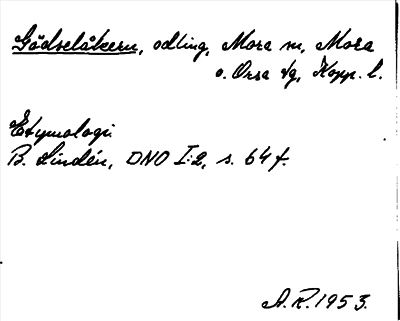 Gödselåkern, odling, Mora sn, Mora
o. Orsa tg, Kopp. l.
Etymologi
B. Lindén, DNO I:2, s. 64 f.
A.R. 1953.